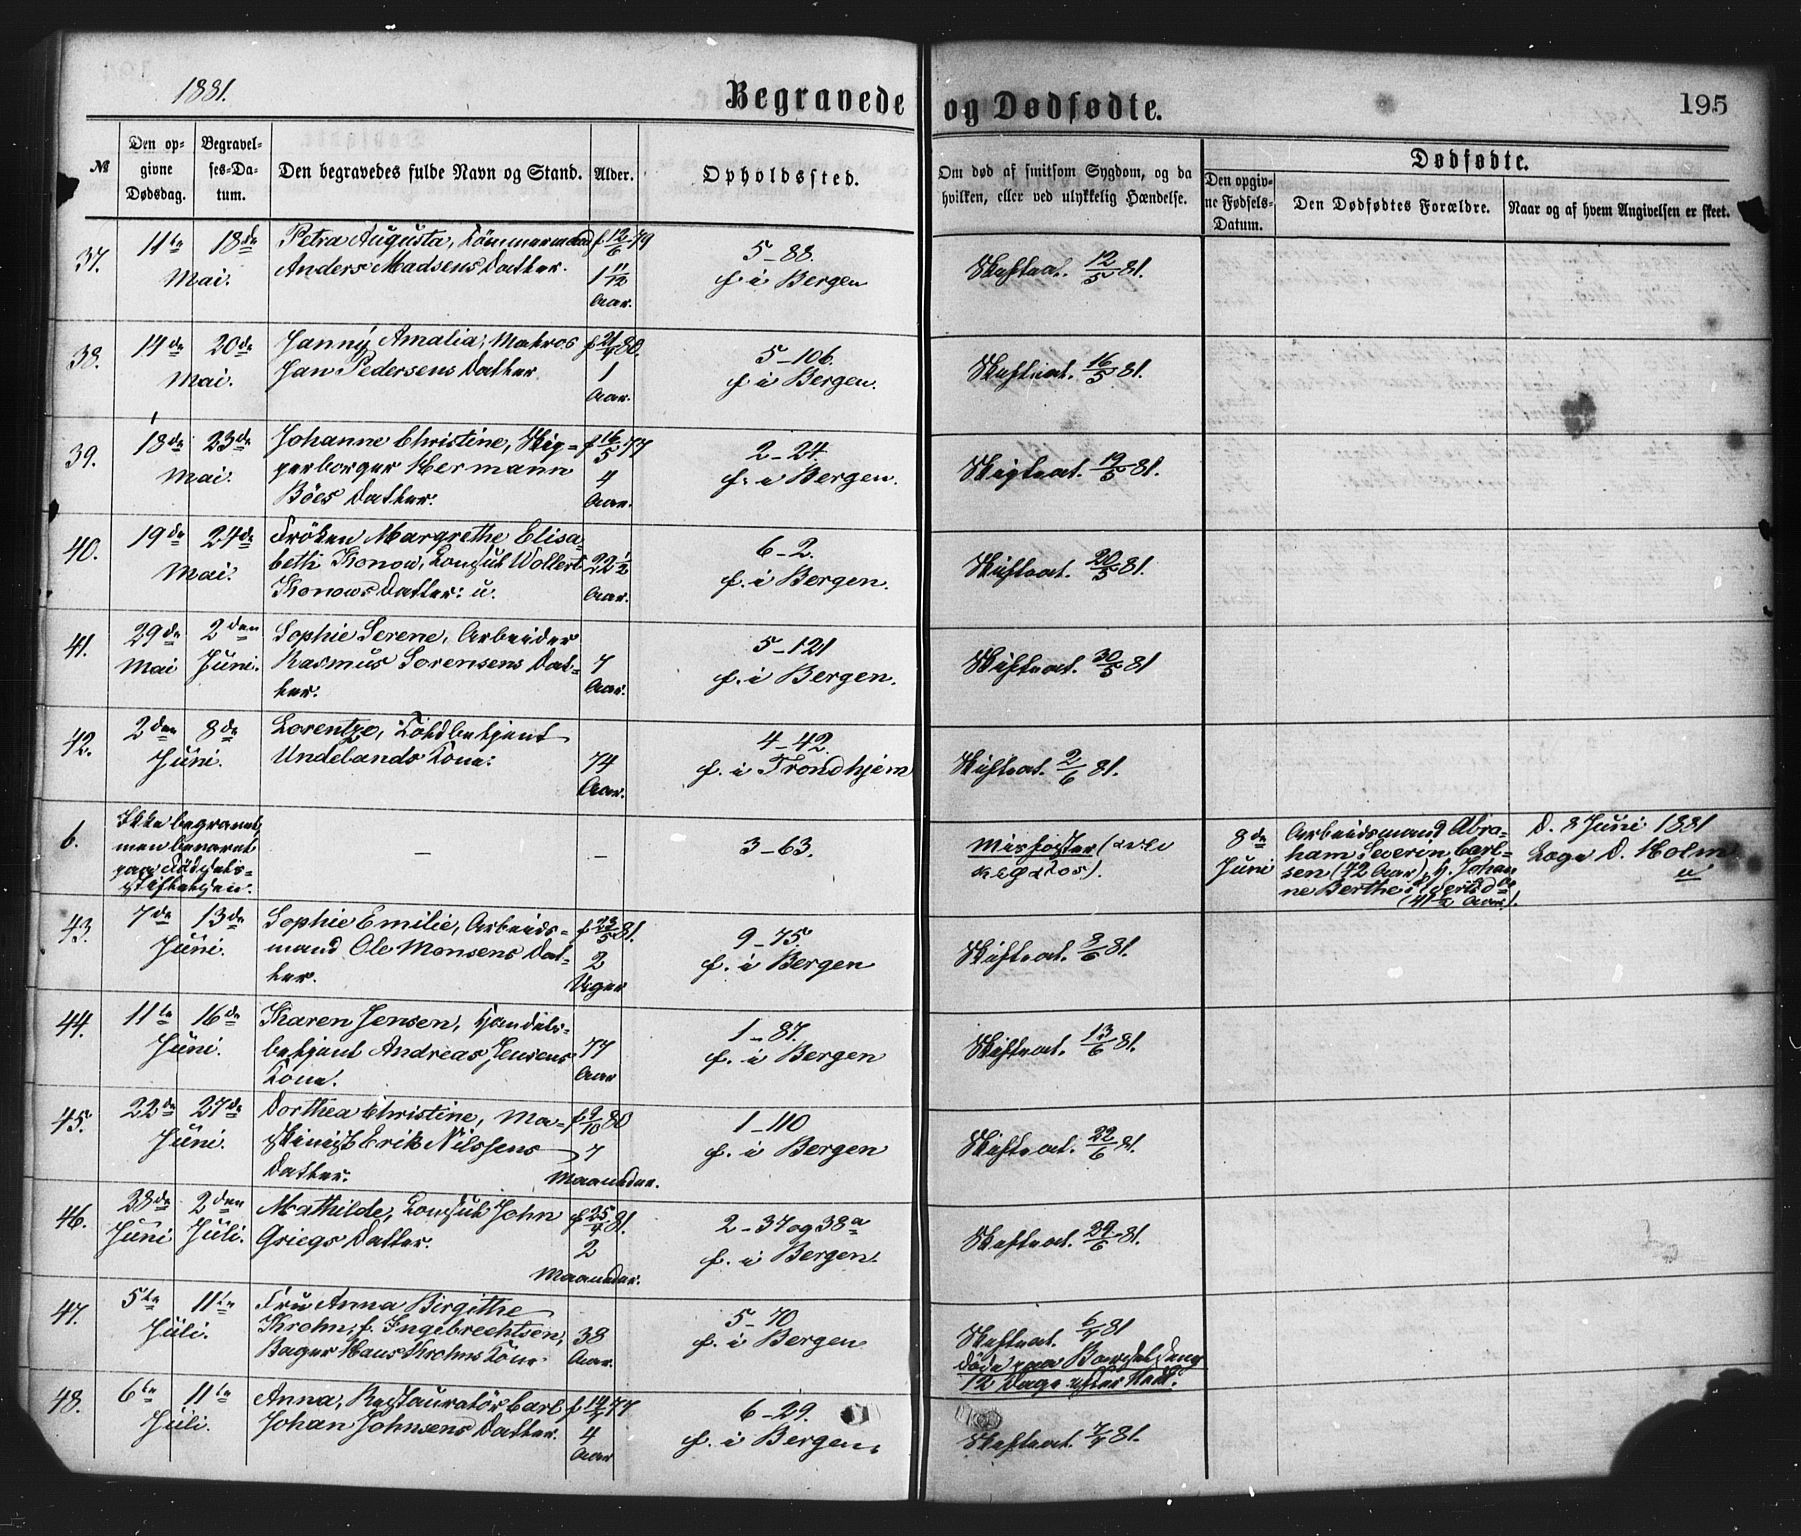 1881.
Begravede og Dødfødte.
195
№
Den opgivne Dødsdag.
Begravelses-Datum.
Den begravedes fulde Navn og Stand.
Alder.
Opholdssted.
Om død af smitsom Sygdom, og da hvilken, eller ved ulykkelig Hændelse.
Dødfødte.
Den opgivne Fødsels-Datum.
Den Dødfødtes Forældre.
Naar og af hvem Angivelsen er skeet.
37. 11te 18de Mai.
Petra Augusta, Tömmermand
Anders Madsens Datter.
f. 12/6 79
1 11/12 Aar.
5-88.
f. i Bergen
Skifteat. 12/5 81.
38. 14de 20de Mai.
Janny Amalia, Matros
Jan Pedersens Datter
1 Aar.
5-106.
f. i Bergen.
Skifteat. 16/5 81.
39. 18de 23de Mai.
Johanne Christine, Skip-
perborger Hermann
Böes Datter.
f. 16/5 77
4 Aar.
2-24.
f. i Bergen.
Skifteat. 19/5 81.
40. 19de 24de Mai.
Fröken Margrethe Elisa-
beth Konow, Consul Wollert
Konows Datter: u.
22 1/2 Aar.
6-2.
f. i Bergen.
Skifteat. 20/5 81.
41. 29de Mai 2den Juni.
Sophie Serene, Arbeider
Rasmus Sorensens Dat-
ter.
7 Aar.
5-121
f. i Bergen.
Skifteat. 30/5 81
42. 2den 8de Juni.
Lorentze, Toldbetjent
Undelands Kone:
74 Aar.
4-42.
f. i Trondhjem
Skifteat. 2/6 81.
6. Ikke begravet,
men bevaret
paa Födsels-
stiftelsen.
—
—
3-63.
Misfoster
8de Juni
Arbeidsmand Abra-
ham Severin Carl-
sen (42 Aar), H. Johan-
ne Berthe
(41 1/2 Aar).
D. 8 Juni 1881
Læge D. Holm
43. 7de 13de Juni.
Sophie Emilie, Arbeids-
mand Ole Monsens Dat-
ter.
f. 23/5 81.
2 Uger
9-75.
f. i Bergen
Skifteat. 8/6 81.
44. 11te 16de Juni.
Karen Jensen, Handels-
betjent Andreas Jensens
Kone.
77 Aar
1-87.
f. i Bergen
Skifteat. 13/6 81.
45. 22de 27de Juni.
Dorthea Christine, Ma-
skinist Erik Nilssens
Datter.
f. 9/10 80
7 Maaneder.
1-110
f. i Bergen
Skifteat. 22/6 81.
46. 28de Juni 2den Juli.
Mathilde, Consul John
Griegs Datter.
f. 25/4 81.
2 Maaneder.
2-37 og 38a
f. i Bergen.
Skifteat. 29/6 81.
47. 5te 11te Juli.
Fru Anna Birgithe
Krohn, f. Ingebrechtsen,
Bager Hans Krohns Kone.
38 Aar.
5-70
f. i Bergen
Skifteat. 6/7 81
döde paa Barselseng
12 Dage efter Neds.
48. 6te 11te Juli.
Anna, Restauratör Carl
Johan Johnsens Datter.
4 Aar
6-29.
f. i Bergen.
Skifteat. 7/7 81.